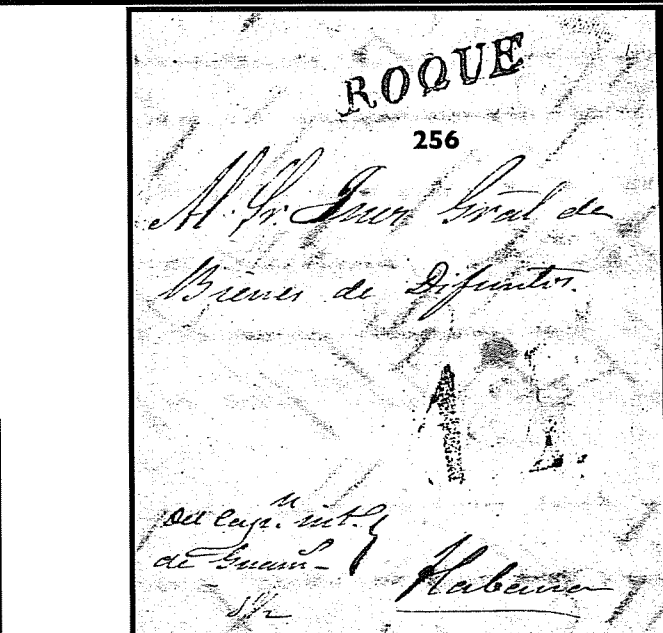 ROQUE
256
Al Sr. Juez Gral de
Bienes de Difuntos.
1
Del Capn. int.
de Guam
Habana